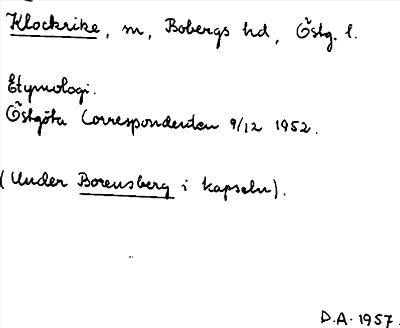 Klockrike, m, Bobergs hd, Östg. l.
Etymologi.
Östgöta Correspondenten 9/12 1952.
(Under Borensberg i kapseln).
D.A. 1957.